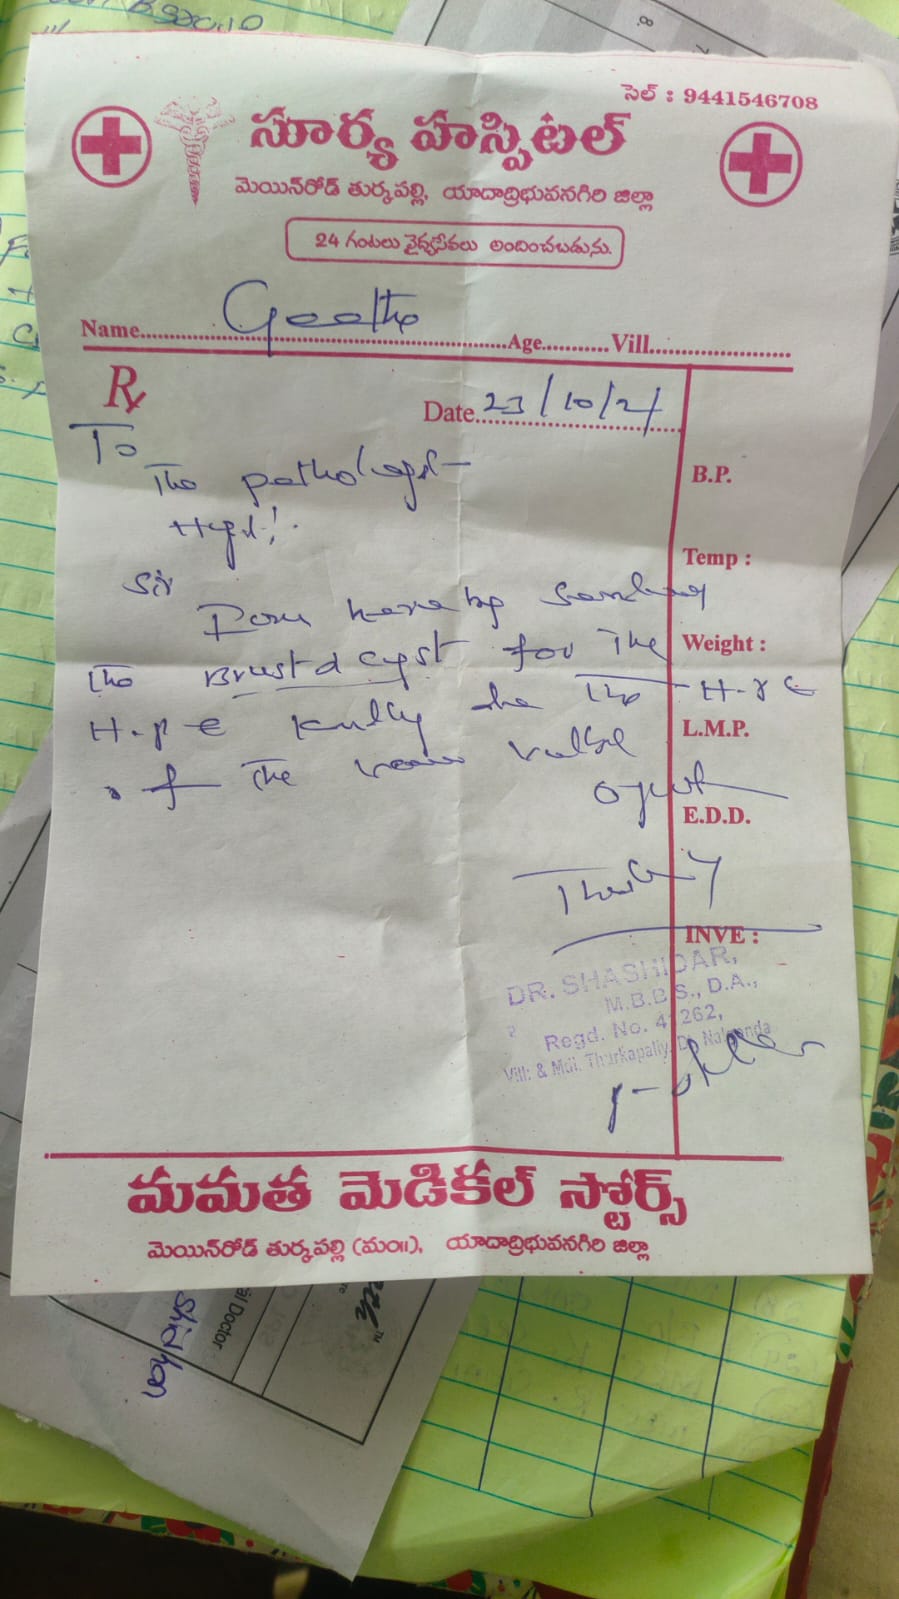 సెల్ : 9441546708
సూర్య హాస్పిటల్
మెయిన్‌రోడ్ తుర్కపల్లి, యాదాద్రిభువనగిరి జిల్లా
24 గంటలు వైద్యసేవలు అందించబడును.
Name Geetha Age Vill
Rx
Date 23/10/21
To
The pathologist
Hyd!.
Sir
I am here by sending
the Brustd cyst for the
H.p.e kindly the H.
of the
B.P.
Temp :
Weight :
L.M.P.
E.D.D.
INVE :
DR. SHASHIDAR,
M.B.B.S., D.A.,
Regd. No. 262,
Vill: & Mdl. Thurkapally, Nalgonda
మమత మెడికల్ స్టోర్స్
మెయిన్‌రోడ్ తుర్కపల్లి (మం॥), యాదాద్రిభువనగిరి జిల్లా
al Doctor